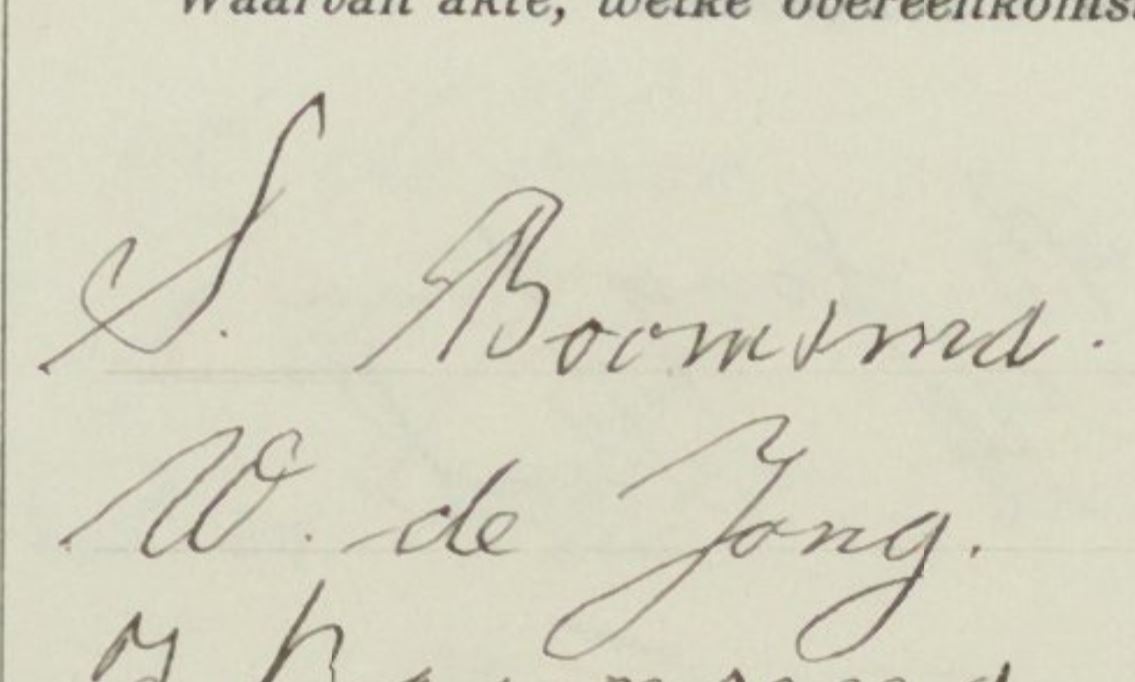 Waarvan akte, welke overeenkomst
S. Boomsma.
W. de Jong.